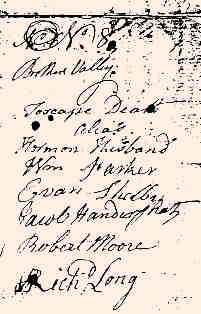 No. 8
Brothers Valley.
Toscape Death
alias
Hormon Husband
Wm Parker
Evan Shelby
Jacob
Robert Moore
Richd Long